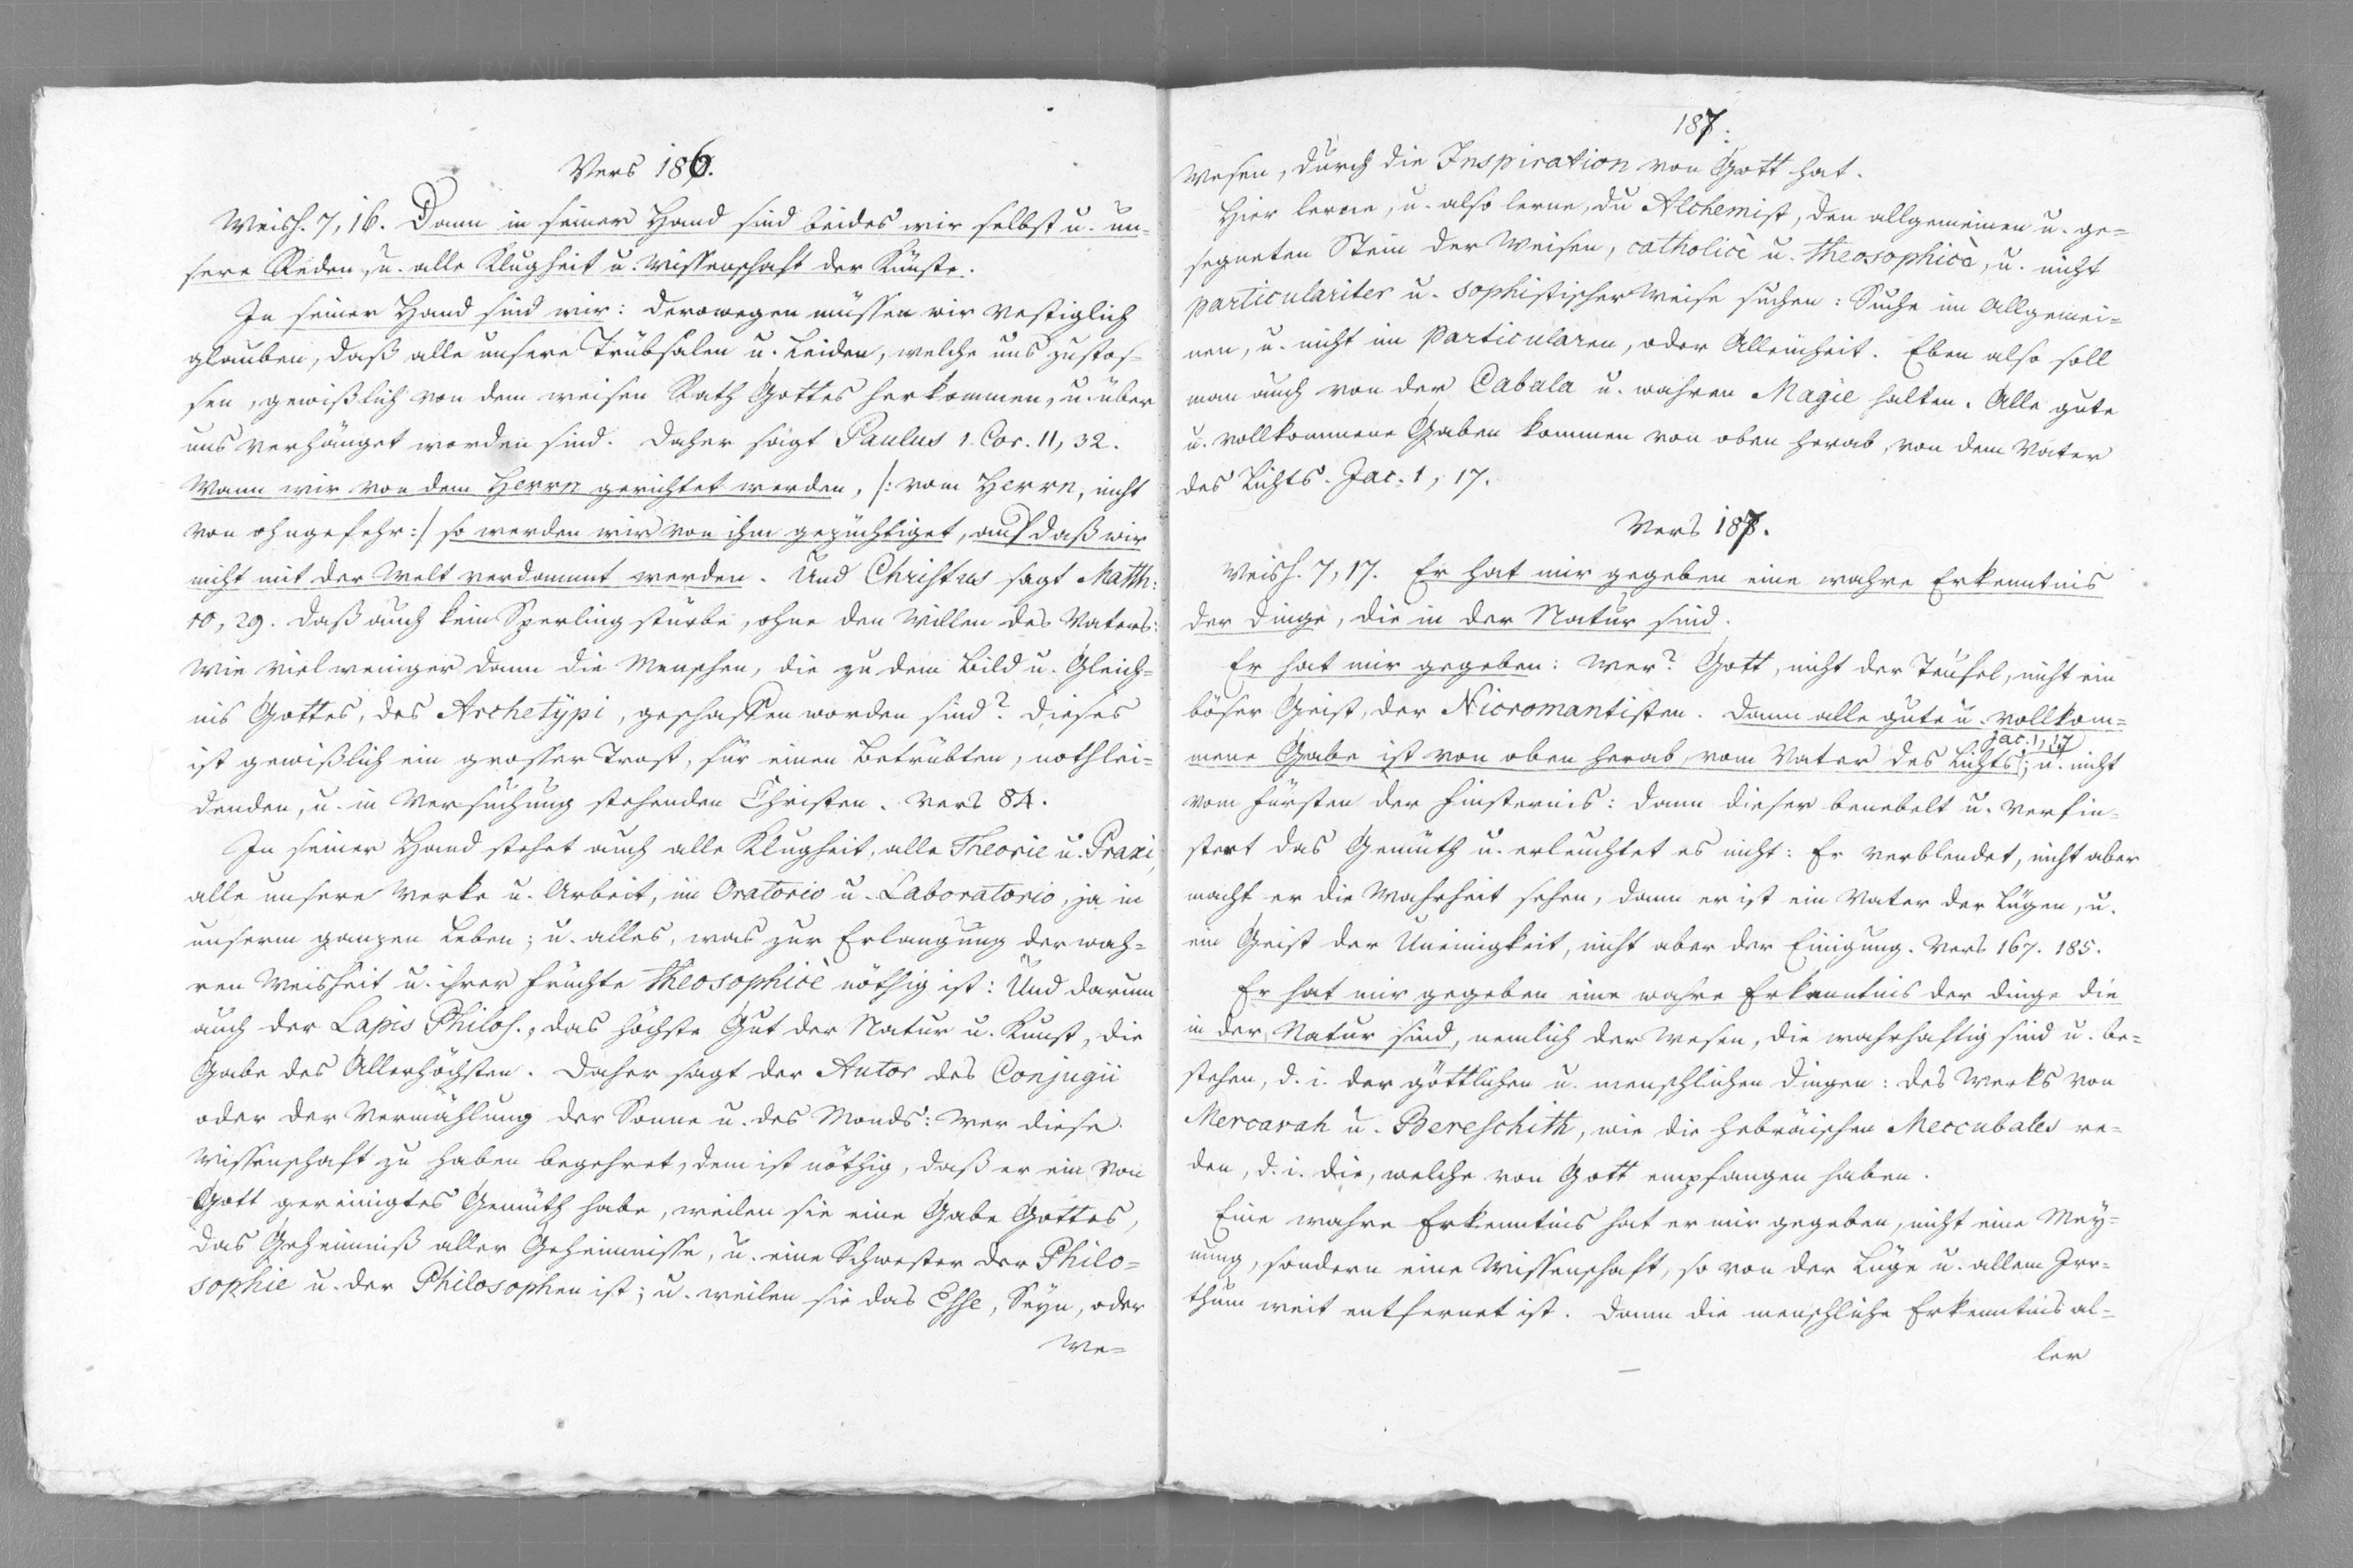 Vers 186.
Weish. 7, 16. Dann in seiner Hand sind beides wir selbst u. un=
sere Reden, u. alle Klugheit u. Wissenschaft der Künste.
In seiner Hand sind wir: derowegen müssen wir vestiglich
glauben, daß alle unsere Trübsalen u. Leiden, welche uns zustos=
sen, gewißlich von dem weisen Rath Gottes herkommen, u. über
uns verhänget worden sind. Daher sagt Paulus 1. Cor. 11, 32.
Wann wir von dem Herrn gerichtet werden, /: vom Herrn, nicht
von ohngefehr :/ so werden wir von ihm gezüchtiget, auf daß wir
nicht mit der Welt verdammt werden. Und Christus sagt Matth:
10, 29. daß auch kein Sperling stürbe, ohne den Willen des Vaters:
wie viel weniger dann die Menschen, die zu dem Bild u. Gleich=
nis Gottes, des Archetypi, geschaffen worden sind? Dieses
ist gewißlich ein grosser Trost, für einen betrübten, nothlei=
denden, u. in Versuchung stehenden Christen. Vers 84.
In seiner Hand stehet auch alle Klugheit, alle Theorie u. Praxi,
alle unsere Werke u. Arbeit, im Oratorio u. Laboratorio, ja in
unserm ganzen Leben; u. alles, was zur Erlangung der wah=
ren Weisheit u. ihrer Früchte theosophicè nöthig ist: Und darum
auch der Lapis Philos., das höchste Gut der Natur u. Kunst, die
Gabe des Allerhöchsten. Daher sagt der Autor des Conjugii
oder der Vermählung der Sonne u. des Monds: Wer diese
Wissenschaft zu haben begehret, dem ist nöthig, daß er ein von
Gott gereinigtes Gemüth habe, weilen sie eine Gabe Gottes,
das Geheimniß aller Geheimnisse, u. eine Schwester der Philo=
sophie u. der Philosophen ist; u. weilen sie das Esse, Seyn, oder
We=
187.
Wesen, durch die Inspiration von Gott hat.
Hier lerne, u. also lerne, du Alchemist, den allgemeinen u. ge=
segneten Stein der Weisen, catholicè u. theosophicè, u. nicht
particulariter u. sophistischer Weise suchen: Suche im Allgemei=
nen, u. nicht im Particularen, oder Alleinheit. Eben also soll
man auch von der Cabala u. wahren Magie halten. Alle gute
u. vollkommene Gaben kommen von oben herab, von dem Vater
des Lichts. Jac. 1, 17.
Vers 187.
Weish. 7, 17. Er hat mir gegeben eine wahre Erkenntnis
der Dinge, die in der Natur sind.
Er hat mir gegeben: Wer? Gott, nicht der Teufel, nicht ein
böser Geist, der Nicromantisten. Dann alle gute u. vollkom=
mene Gabe ist von oben herab, vom Vater des Lichts Jac. 1, 17; u. nicht
vom Fürsten der Finsternis: dann dieser benebelt u. verfin=
stert das Gemüth u. erleuchtet es nicht: Er verblendet, nicht aber
macht er die Wahrheit sehen, dann er ist ein Vater der Lügen, u.
ein Geist der Uneinigkeit, nicht aber der Einigung. Vers 167. 185.
Er hat mir gegeben eine wahre Erkenntnis der Dinge die
in der Natur sind, nemlich der Wesen, die wahrhaftig sind u. be=
stehen, d. i. der göttlichen u. menschlichen Dingen: des Werks von
Mercavah u. Bereschith, wie die hebräischen Meccubales re=
den, d. i. die, welche von Gott empfangen haben.
Eine wahre Erkenntnis hat er mir gegeben, nicht eine Mey=
nung, sondern eine Wissenschaft, so von der Lüge u. allem Irr=
thum weit entfernet ist. Dann die menschliche Erkenntnis al=
ler